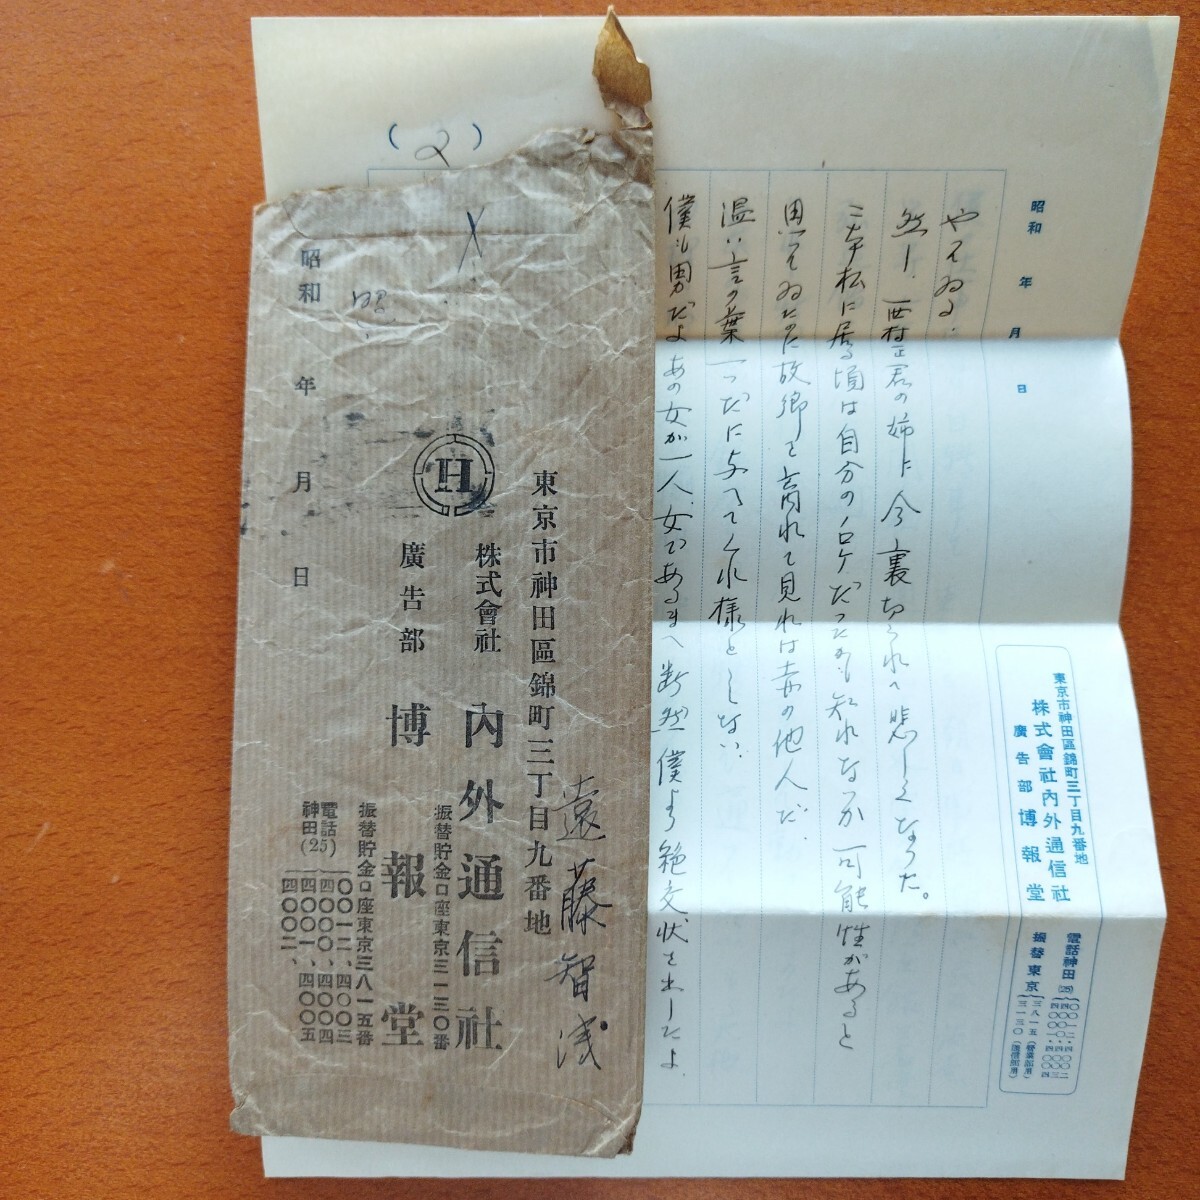 (2)
昭和 年 月 日
やてゐる.
然し.西村正君の姉に今裏切られ悲しくなった。
二本松に居る頃は自分の だったかも知れないが可能性があると
思ってゐたのに故郷を離れて見れば赤の他人だ.
温い言の葉一つだに与へてくれ様としない.
僕も男だよあの女が一人、女であるまへ断然僕より絶交状を出したよ.
東京市神田區錦町三丁目九番地
株式會社內外通信社
廣告部 博報堂
電話神田(25)
振替東京
昭和 年 月 日
昭
H
東京市神田區錦町三丁目九番地
株式會社 內外通信社
振替貯金口座東京三一三〇番
廣告部 博報堂
振替貯金口座東京三八一五番
電話神田(25)
〇〇一二、四〇〇三
四〇〇〇、四〇〇四
四〇〇一、四〇〇五
四〇〇二、
遠藤智